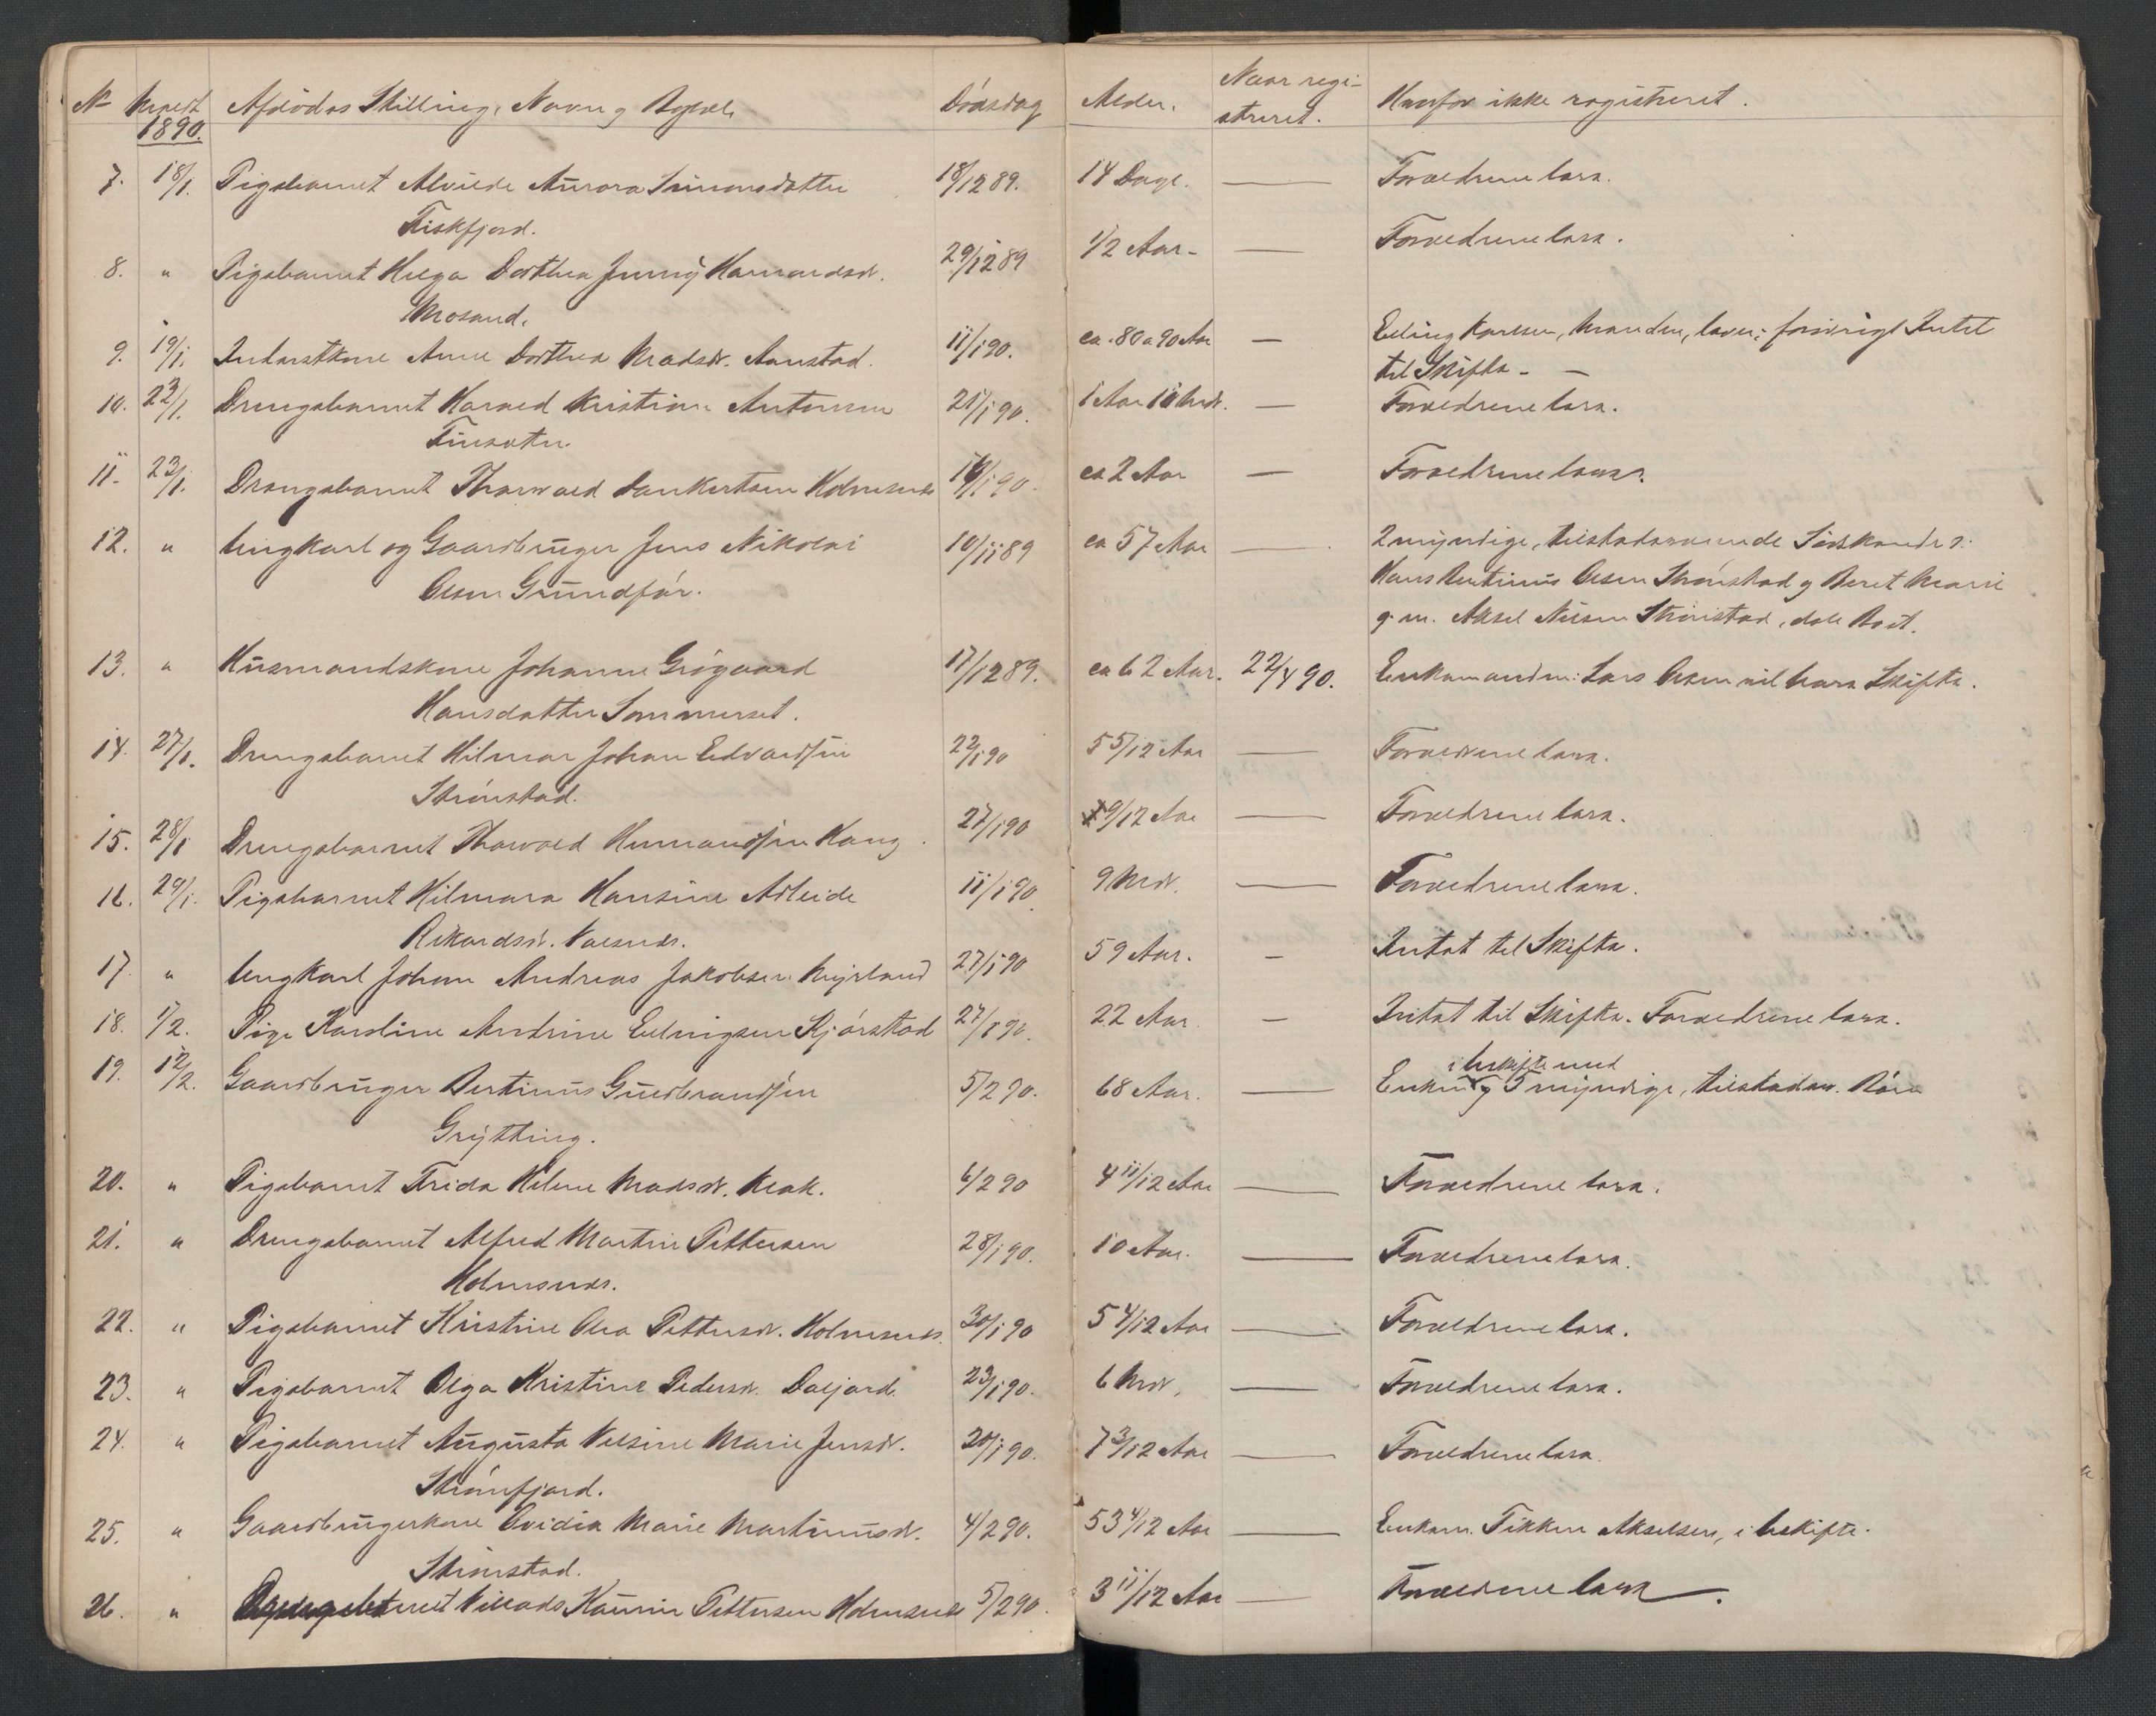 No Anmeldt 1890. Afdødes Stilling, Navn og Bopæl. Dødsdag Alder. Naar regi-
streret. Hvorfor ikke registreret.
7. 18/1. Pigebarnet Alvilde Aurora Simonsdatter 18/12 89. 14 Dage. — Forældrene leve.
Fiskfjord.
8. " Pigebarnet Helga Dorthea Jenny Hamandsdr. 29/12 89 1/2 Aar. — Forældrene leve.
Mosand.
9. 19/1. Inderstkone Anne Dorthea Madsdr. Aanstad. 11/1 90. ca. 80 a 90 Aar — Erling Karlsen, Manden, lever; forøvrigt Intet
til Skifte. —
10. 22/1. Drengebarnet Harald Kristian Antonsen 21/1 90. 1 Aar 10 Mdr. — Forældrene leve.
Finsæter.
11. 23/1. Drengebarnet Thorvald Dankertsen Holmsnes 14/1 90. ca 2 Aar — Forældrene leve.
12. " Ungkarl og Gaardbruger Jens Nikolai 10/11 89 ca 57 Aar — 2 myndige, tilstedeværende Sødskende:
Olsen Grundfør. Hans Bertinus Olsen Strønstad og Beret Marie
g. m. Aksel Nilsen Strønstad, dele Boet.
13. " Husmandskone Johanne Grøgaard 17/12 89. ca 62 Aar. 22/4 90. Enkemanden: Lars Olsen vil have Skifte.
Hansdatter Sommerset.
14. 27/1. Drengebarnet Hilmar Johan Edvardsen 22/1 90 5 5/12 Aar — Forældrene leve.
Strønstad.
15. 28/1 Drengebarnet Thorvald Hermandsen Haug. 27/1 90 9/12 Aar — Forældrene leve.
16. 29/1. Pigebarnet Hilmara Hansine Adleide 11/1 90. 9 Mdr. — Forældrene leve.
Rikardsdr. Valsnes.
17. " Ungkarl Johan Andreas Jakobsen Myrland 27/1 90 59 Aar. — Intet til Skifte.
18. 1/2. Pige Karoline Andrine Erlingsen Kjørstad 27/1 90. 22 Aar. — Intet til Skifte. Forældrene leve.
19. 12/2. Gaardbruger Bertinus Guldbrandsen 5/2 90. 68 Aar. — Enken i Uskifte med 5 myndige, tilstedev. Børn
Grytting.
20. " Pigebarnet Frida Helene Madsdr. Klak. 6/2 90 4 11/12 Aar — Forældrene leve.
21. " Drengebarnet Alfred Martin Pettersen 28/1 90. 10 Aar. — Forældrene leve.
Holmsnes.
22. " Pigebarnet Kristine Olea Pettersdr. Holmsnes. 30/1 90 5 4/12 Aar — Forældrene leve.
23. " Pigebarnet Olga Kristine Pedersdr. Daljord. 23/1 90. 6 Mdr. — Forældrene leve.
24. " Pigebarnet Augusta Nilsine Marie Jensdr. 20/1 90. 7 3/12 Aar — Forældrene leve.
Strønfjord.
25. " Gaardbrugerkone Ovidia Marie Martinusdr. 4/2 90. 53 4/12 Aar — Enkem. Fikken Akselsen, i Uskifte.
Strønstad.
26. " Drengebarnet Villads Kaurin Pettersen Holmsnes 5/2 90. 3 11/12 Aar — Forældrene leve.